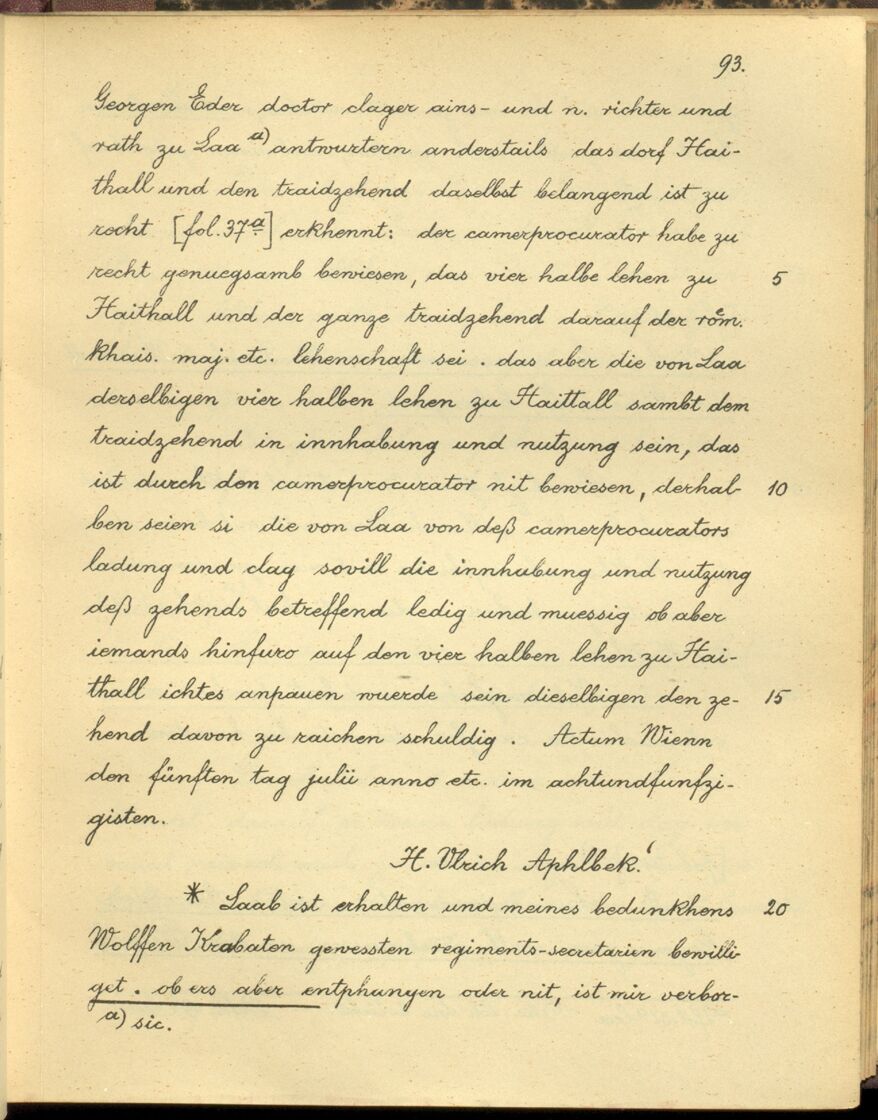 93.
Georgen Eder doctor clager ains- und n. richter und
rath zu Laa a) antwurtern anderstails das dorf Hai-
thall und den traidzehend daselbst belangend ist zu
recht [fol. 37a] erkhennt: der camerprocurator habe zu
recht genuegsamb bewiesen, das vier halbe lehen zu 5
Haithall und der ganze traidzehend darauf der röm.
khais. maj. etc. lehenschaft sei. das aber die von Laa
derselbigen vier halben lehen zu Haittall sambt dem
traidzehend in innhabung und nutzung sein, das
ist durch den camerprocurator nit bewiesen, derhal- 10
ben seien si die von Laa von deß camerprocurators
ladung und clag sovill die innhabung und nutzung
deß zehends betreffend ledig und muessig ob aber
iemands hinfuro auf den vier halben lehen zu Hai-
thall ichtes anpauen wuerde sein dieselbigen den ze- 15
hend davon zu raichen schuldig. Actum Wienn
den fünften tag julii anno etc. im achtundfunfzi-
gisten.
H. Ulrich Aphlbek.
* Laab ist erhalten und meines bedunkhens 20
Wolffen Krabaten gewessten regiments-secretarien bewilli-
get. ob ers aber entphangen oder nit, ist mir verbor-
a) sic.